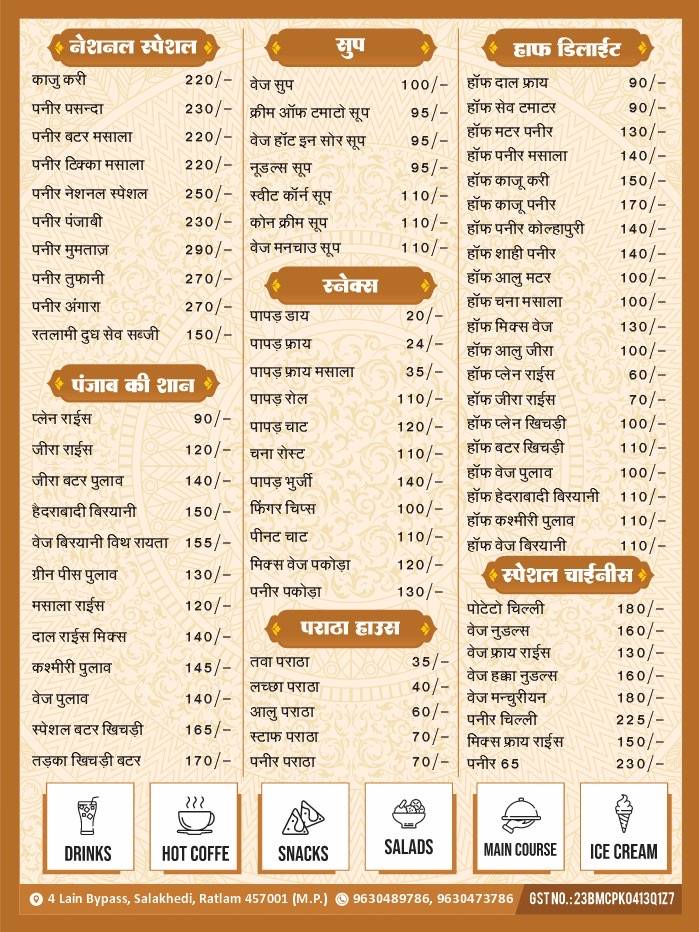 नेशनल स्पेशल
काजु करी 220/-
पनीर पसन्दा 230/-
पनीर बटर मसाला 220/-
पनीर टिक्का मसाला 220/-
पनीर नेशनल स्पेशल 250/-
पनीर पंजाबी 230/-
पनीर मुमताज़ 290/-
पनीर तुफानी 270/-
पनीर अंगारा 270/-
रतलामी दुध सेव सब्जी 150/-
पंजाब की शान
प्लेन राईस 90/-
जीरा राईस 120/-
जीरा बटर पुलाव 140/-
हैदराबादी बिरयानी 150/-
वेज बिरयानी विथ रायता 155/-
ग्रीन पीस पुलाव 130/-
मसाला राईस 120/-
दाल राईस मिक्स 140/-
कश्मीरी पुलाव 145/-
वेज पुलाव 140/-
स्पेशल बटर खिचड़ी 165/-
तड़का खिचड़ी बटर 170/-
सुप
वेज सुप 100/-
क्रीम ऑफ टमाटो सूप 95/-
वेज हॉट इन सोर सूप 95/-
नूडल्स सूप 95/-
स्वीट कॉर्न सूप 110/-
कोन क्रीम सूप 110/-
वेज मनचाउ सूप 110/-
स्नेक्स
पापड़ डाय 20/-
पापड़ फ्राय 24/-
पापड़ फ्राय मसाला 35/-
पापड़ रोल 110/-
पापड़ चाट 120/-
चना रोस्ट 110/-
पापड़ भुर्जी 140/-
फिंगर चिप्स 100/-
पीनट चाट 110/-
मिक्स वेज पकोड़ा 120/-
पनीर पकोड़ा 130/-
पराठा हाउस
तवा पराठा 35/-
लच्छा पराठा 40/-
आलु पराठा 60/-
स्टाफ पराठा 70/-
पनीर पराठा 70/-
हाफ डिलाईट
हॉफ दाल फ्राय 90/-
हॉफ सेव टमाटर 90/-
हॉफ मटर पनीर 130/-
हॉफ पनीर मसाला 140/-
हॉफ काजू करी 150/-
हॉफ काजू पनीर 170/-
हॉफ पनीर कोल्हापुरी 140/-
हॉफ शाही पनीर 140/-
हॉफ आलु मटर 100/-
हॉफ चना मसाला 100/-
हॉफ मिक्स वेज 130/-
हॉफ आलु जीरा 100/-
हॉफ प्लेन राईस 60/-
हॉफ जीरा राईस 70/-
हॉफ प्लेन खिचड़ी 100/-
हॉफ बटर खिचड़ी 110/-
हॉफ वेज पुलाव 100/-
हॉफ हेदराबादी बिरयानी 110/-
हॉफ कश्मीरी पुलाव 110/-
हॉफ वेज बिरयानी 110/-
स्पेशल चाईनीस
पोटेटो चिल्ली 180/-
वेज नुडल्स 160/-
वेज फ्राय राईस 130/-
वेज हक्का नुडल्स 160/-
वेज मन्चुरीयन 180/-
पनीर चिल्ली 225/-
मिक्स फ्राय राईस 150/-
पनीर 65 230/-
DRINKS
HOT COFFE
SNACKS
SALADS
MAIN COURSE
ICE CREAM
4 Lain Bypass, Salakhedi, Ratlam 457001 (M.P.) 9630489786, 9630473786 GST NO.: 23BMCPK0413Q1Z7